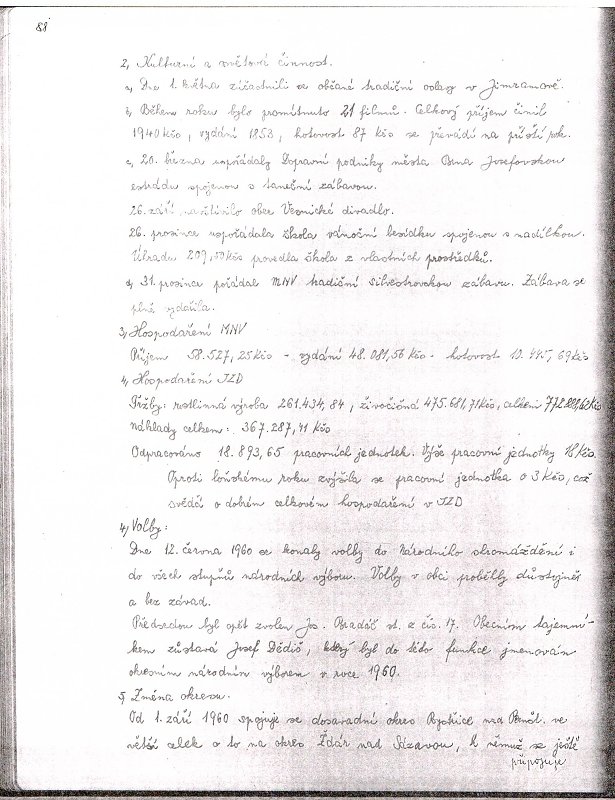 88
2, Kulturní a světová činnost.
a, Dne 1. května zúčastnili se občané tradiční oslavy v Jimramově.
b, Během roku bylo promítnuto 21 filmů. Celkový příjem činil
1940 kčs, vydání 1853, hotovost 87 kčs se převádí na příští rok.
c, 20. března uspořádaly Dopravní podniky města Brna Josefovskou
estrádu spojenou s taneční zábavou.
26. září navštívilo obec Vesnické divadlo.
26. prosince uspořádala škola vánoční besídku spojenou s nadílkou.
Úhradu 209,59 kčs provedla škola z vlastních prostředků.
d, 31. prosince pořádal MNV tradiční silvestrovskou zábavu. Zábava se
plně vydařila.
3, Hospodaření MNV
Příjem 58.527,25 kčs - vydání 48.081,56 kčs - hotovost 10.445,69 kčs
4, Hospodaření JZD
Tržby: rostlinná výroba 261.434,84, živočišná 475.681,71 kčs, celkem
Náklady celkem: 367.287,41 kčs
Odpracováno 18.893,65 pracovních jednotek. Výše pracovní jednotky 18 kčs.
Oproti loňskému roku zvýšila se pracovní jednotka o 3 kčs, což
svědčí o dobrém celkovém hospodaření v JZD
4, Volby:
Dne 12. června 1960 se konaly volby do Národního shromáždění i
do všech stupňů národních výborů. Volby v obci proběhly důstojně
a bez závad.
Předsedou byl opět zvolen Jos. Bradáč st. z čís. 17. Obecním tajemní-
kem zůstává Josef Dědič, který byl do této funkce jmenován
okresním národním výborem v roce 1960.
5, Změna okresu.
Od 1. září 1960 spojuje se dosavadní okres Bystřice nad Pernšt. ve
větší celek a to na okres Žďár nad Sázavou, k němuž se ještě
připojuje